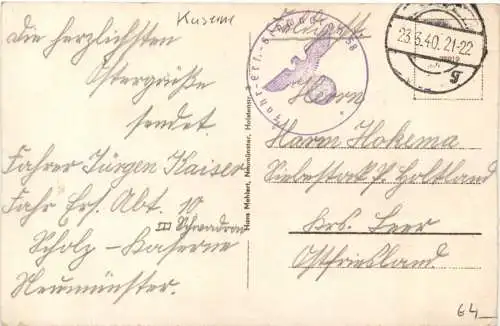 Kaserne
Die herzlichsten
Ostergrüße
sendet
Fahrer Jürgen Kaiser
Fahr Ers. Abt. 10
III Schwadron
Scholz-Kaserne
Neumünster.
Hans Mehlert, Neumünster, Holstenstr.
Feldpost
Fahr-Ers.-Schwadron
58
23.3.40.21-22
g
Herrn
Harm Hokema
Siebestock P. Holtland
Krs. Leer
Ostfriesland.
64